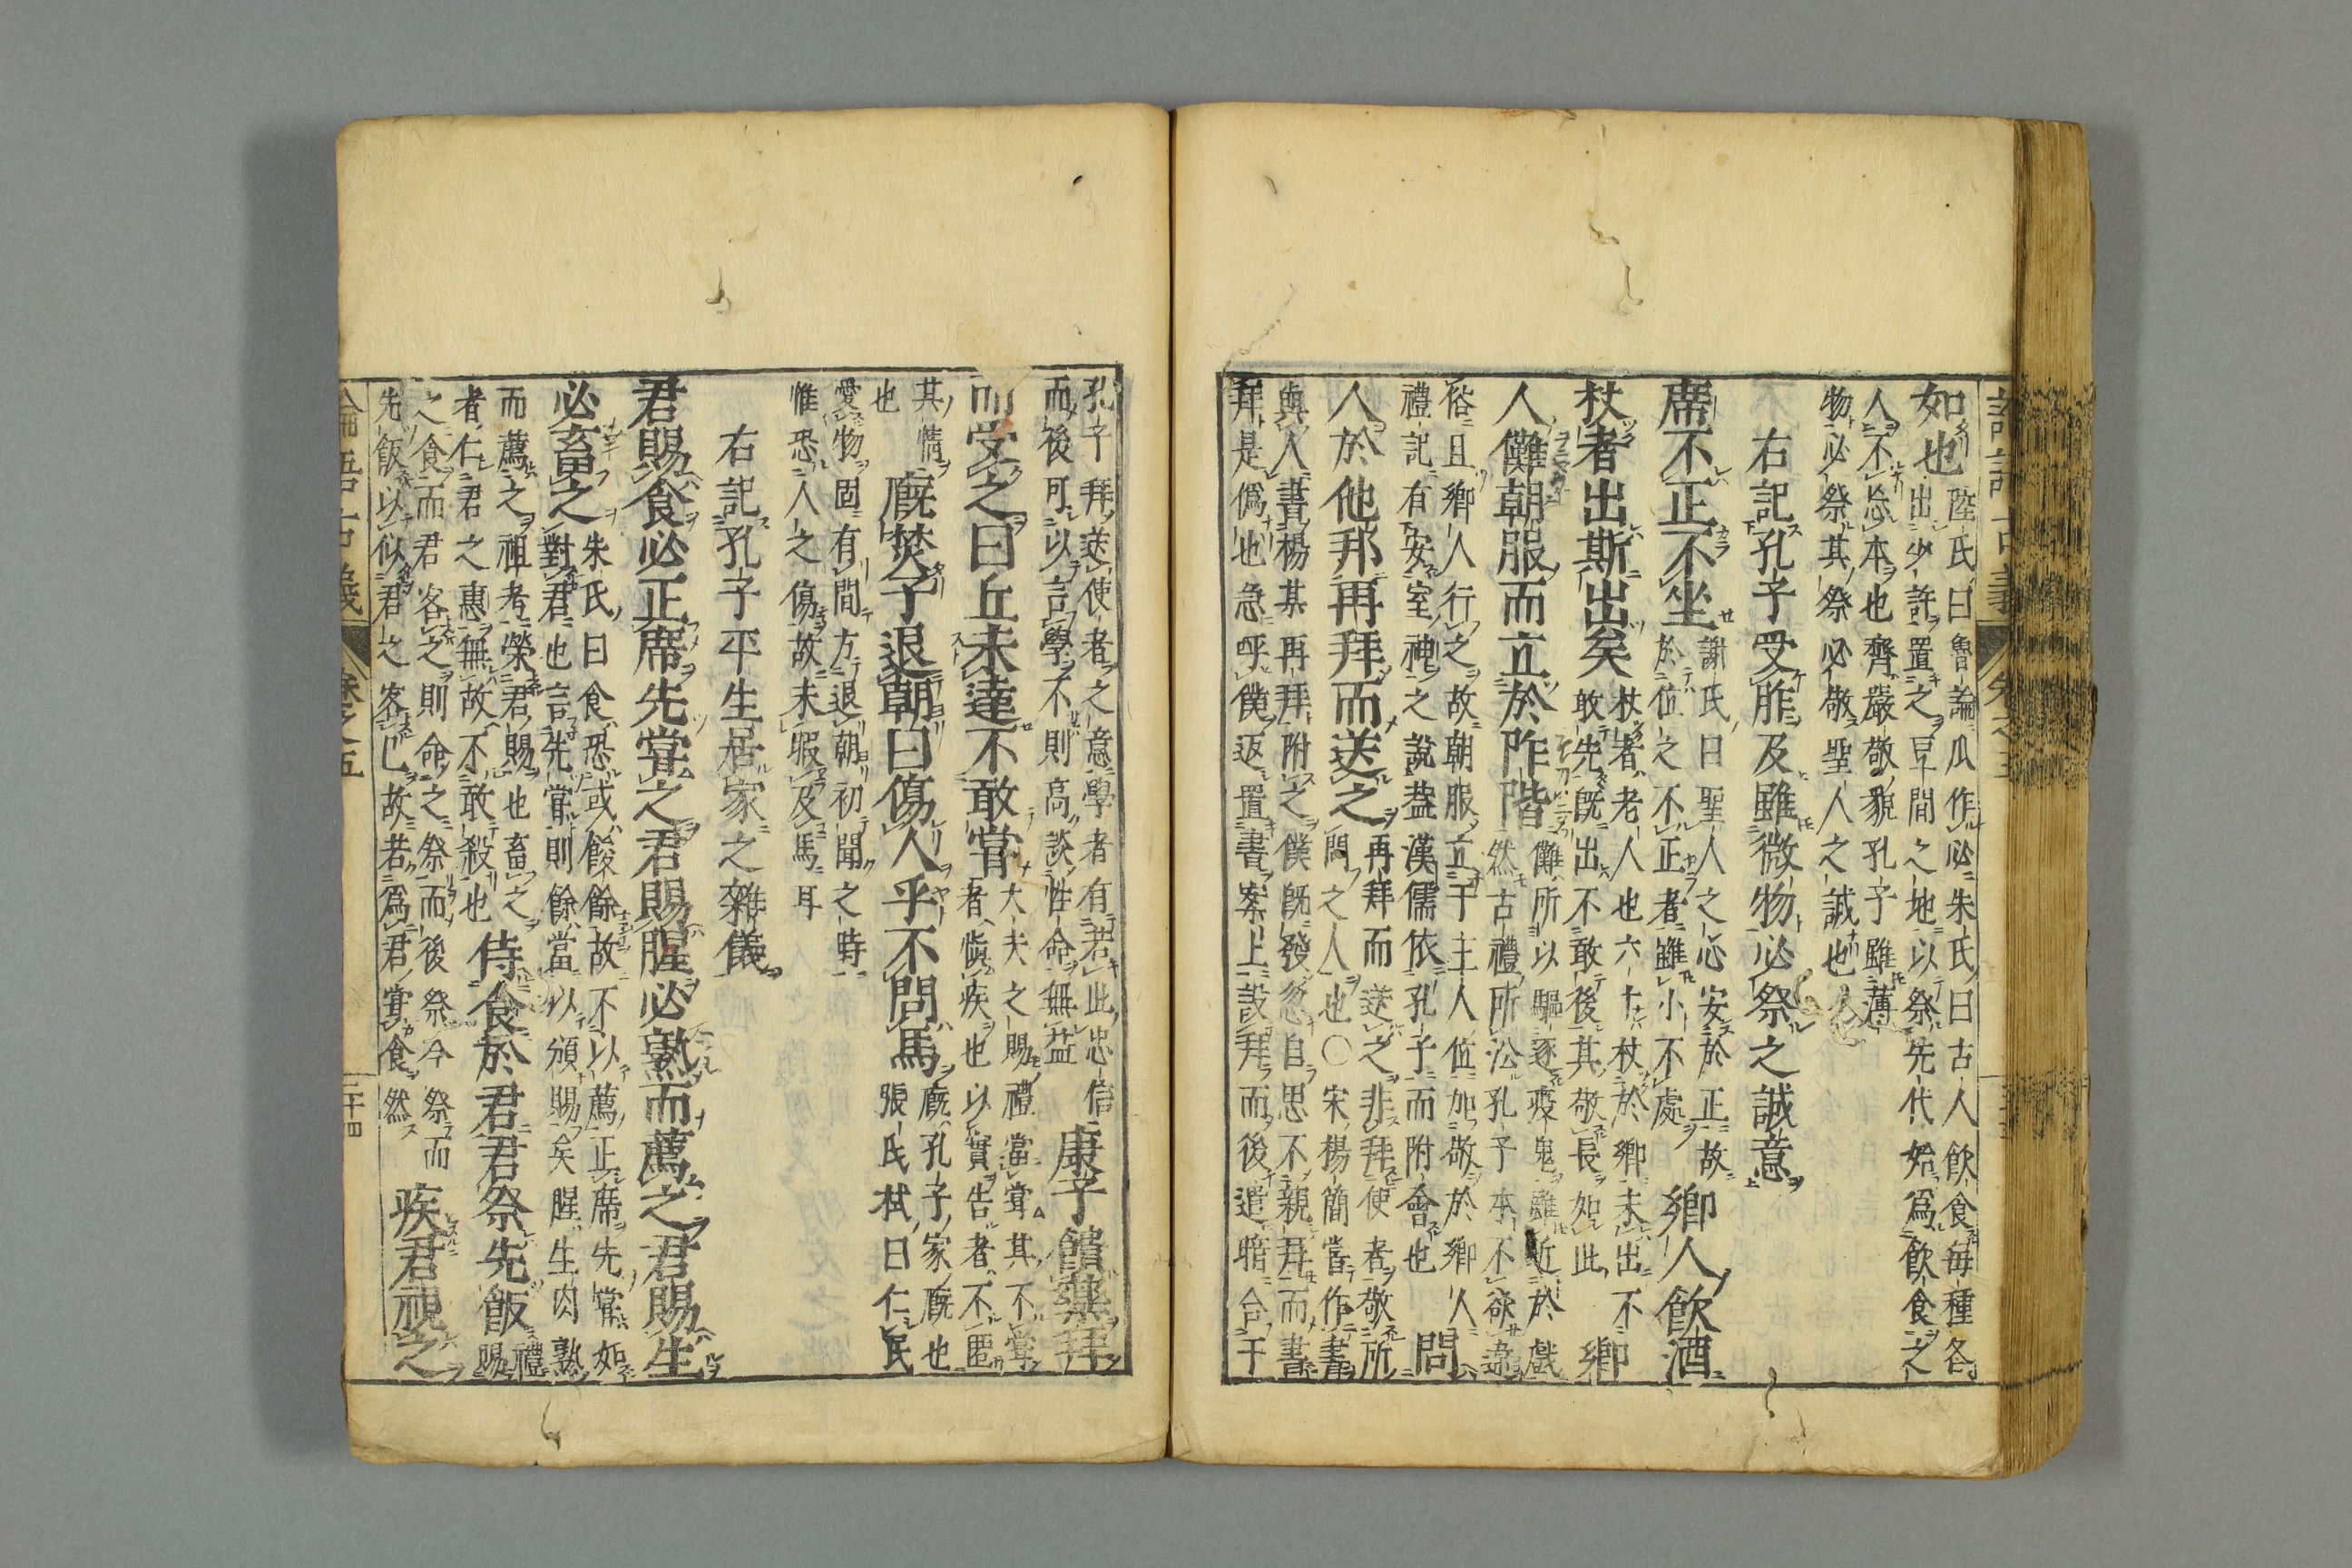 如也
陸氏曰魯論瓜作必朱氏曰古人飲食毎種各
出少許置之豆間之地以祭先代始爲飲食之
人不忘本也齊嚴敬貌孔子雖薄
物必祭其祭必敬聖人之誠也
右記孔子受胙及雖微物必祭之誠意
席不正不坐
謝氏曰聖人之心安於正故
於位之不正者雖小不處
鄉人飲酒
杖者出斯出矣
杖者老人也六十杖於鄉未出不
敢先既出不敢後其敬長如此
鄉
人儺朝服而立於阼階
儺所以驅逐疫鬼雖近於戲
然古禮所沿孔子本不欲違
俗且鄉人行之故朝服立于主人位加敬於鄉人
禮記有安室神之說蓋漢儒依孔子而附會也
問
人於他邦再拜而送之
再拜而送之非拜使者敬所
問之人也〇宋楊簡嘗作書
與人書楊其再拜附之僕既發忽自思不親拜而書
拜是僞也急呼僕返置書案上設拜而後遣暗合于
孔子拜送使者之意學者有若此忠信
而後可以言學不則高談性命無益
康子饋藥拜
而受之曰丘未達不敢嘗
大夫之賜禮當嘗其不嘗
者愼疾也以實告者不匿
其情
也
廐焚子退朝曰傷人乎不問馬
廐孔子家廐也
張氏栻曰仁民
愛物固有間方退朝初聞之時
惟恐人之傷故未暇及馬耳
右記孔子平生居家之雜儀
君賜食必正席先嘗之君賜腥必熟而薦之君賜生
必畜之
朱氏曰食恐或餕餘故不以薦正席先嘗如
對君也言先嘗則餘當以頒賜矣腥生肉熟
而薦之祖考榮君賜也畜之
者仁君之惠無故不敢殺也
侍食於君君祭先飯
禮
賜
之食而君客之則命之祭而後祭今祭而
先飯以似君之客己故若爲君嘗食然
疾君視之
論語古義
卷之五
二十四